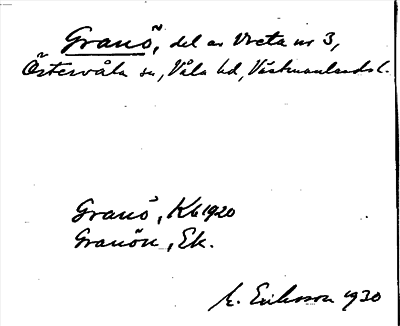 Granö, del av Vreta nr 3,
Östervåla sn, Våla hd, Västmanlands l.
Granö, Kb 1920
Granön, Ek.
E. Eriksson 1930